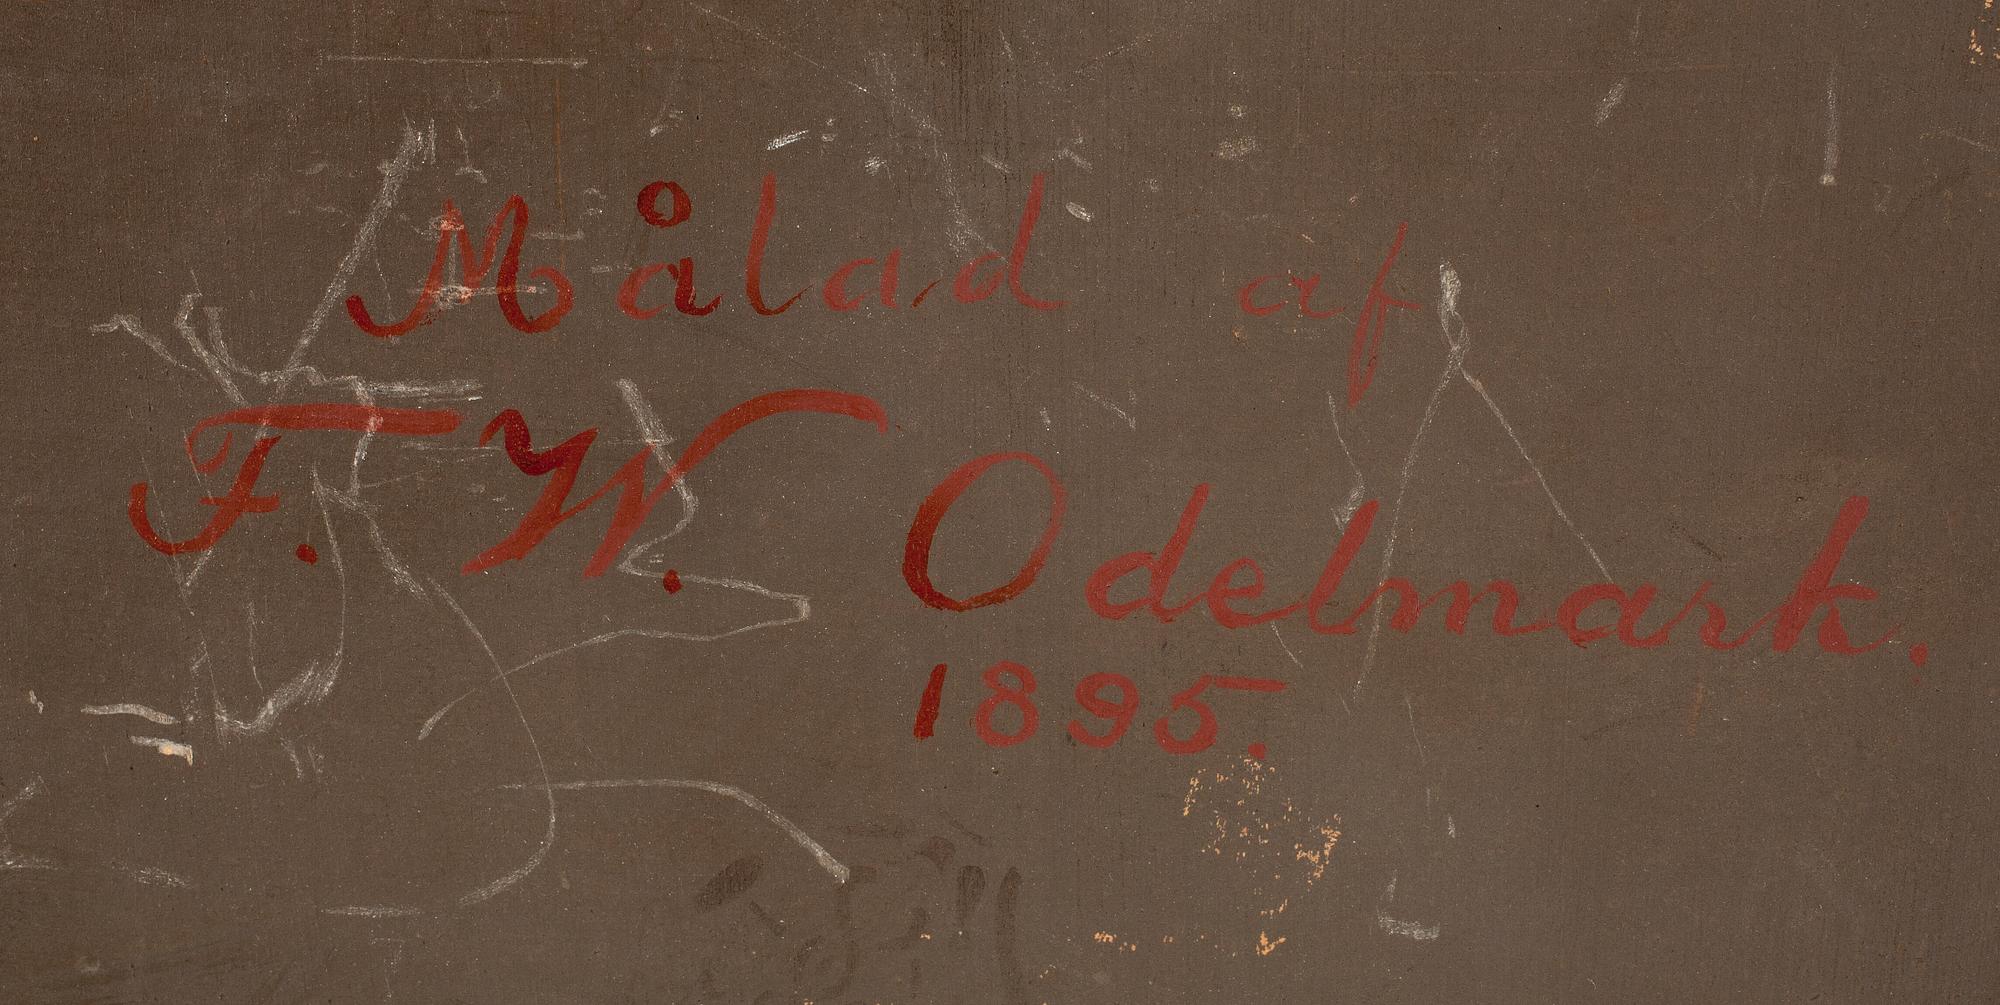 Målad af
F. W. Odelmark.
1895.